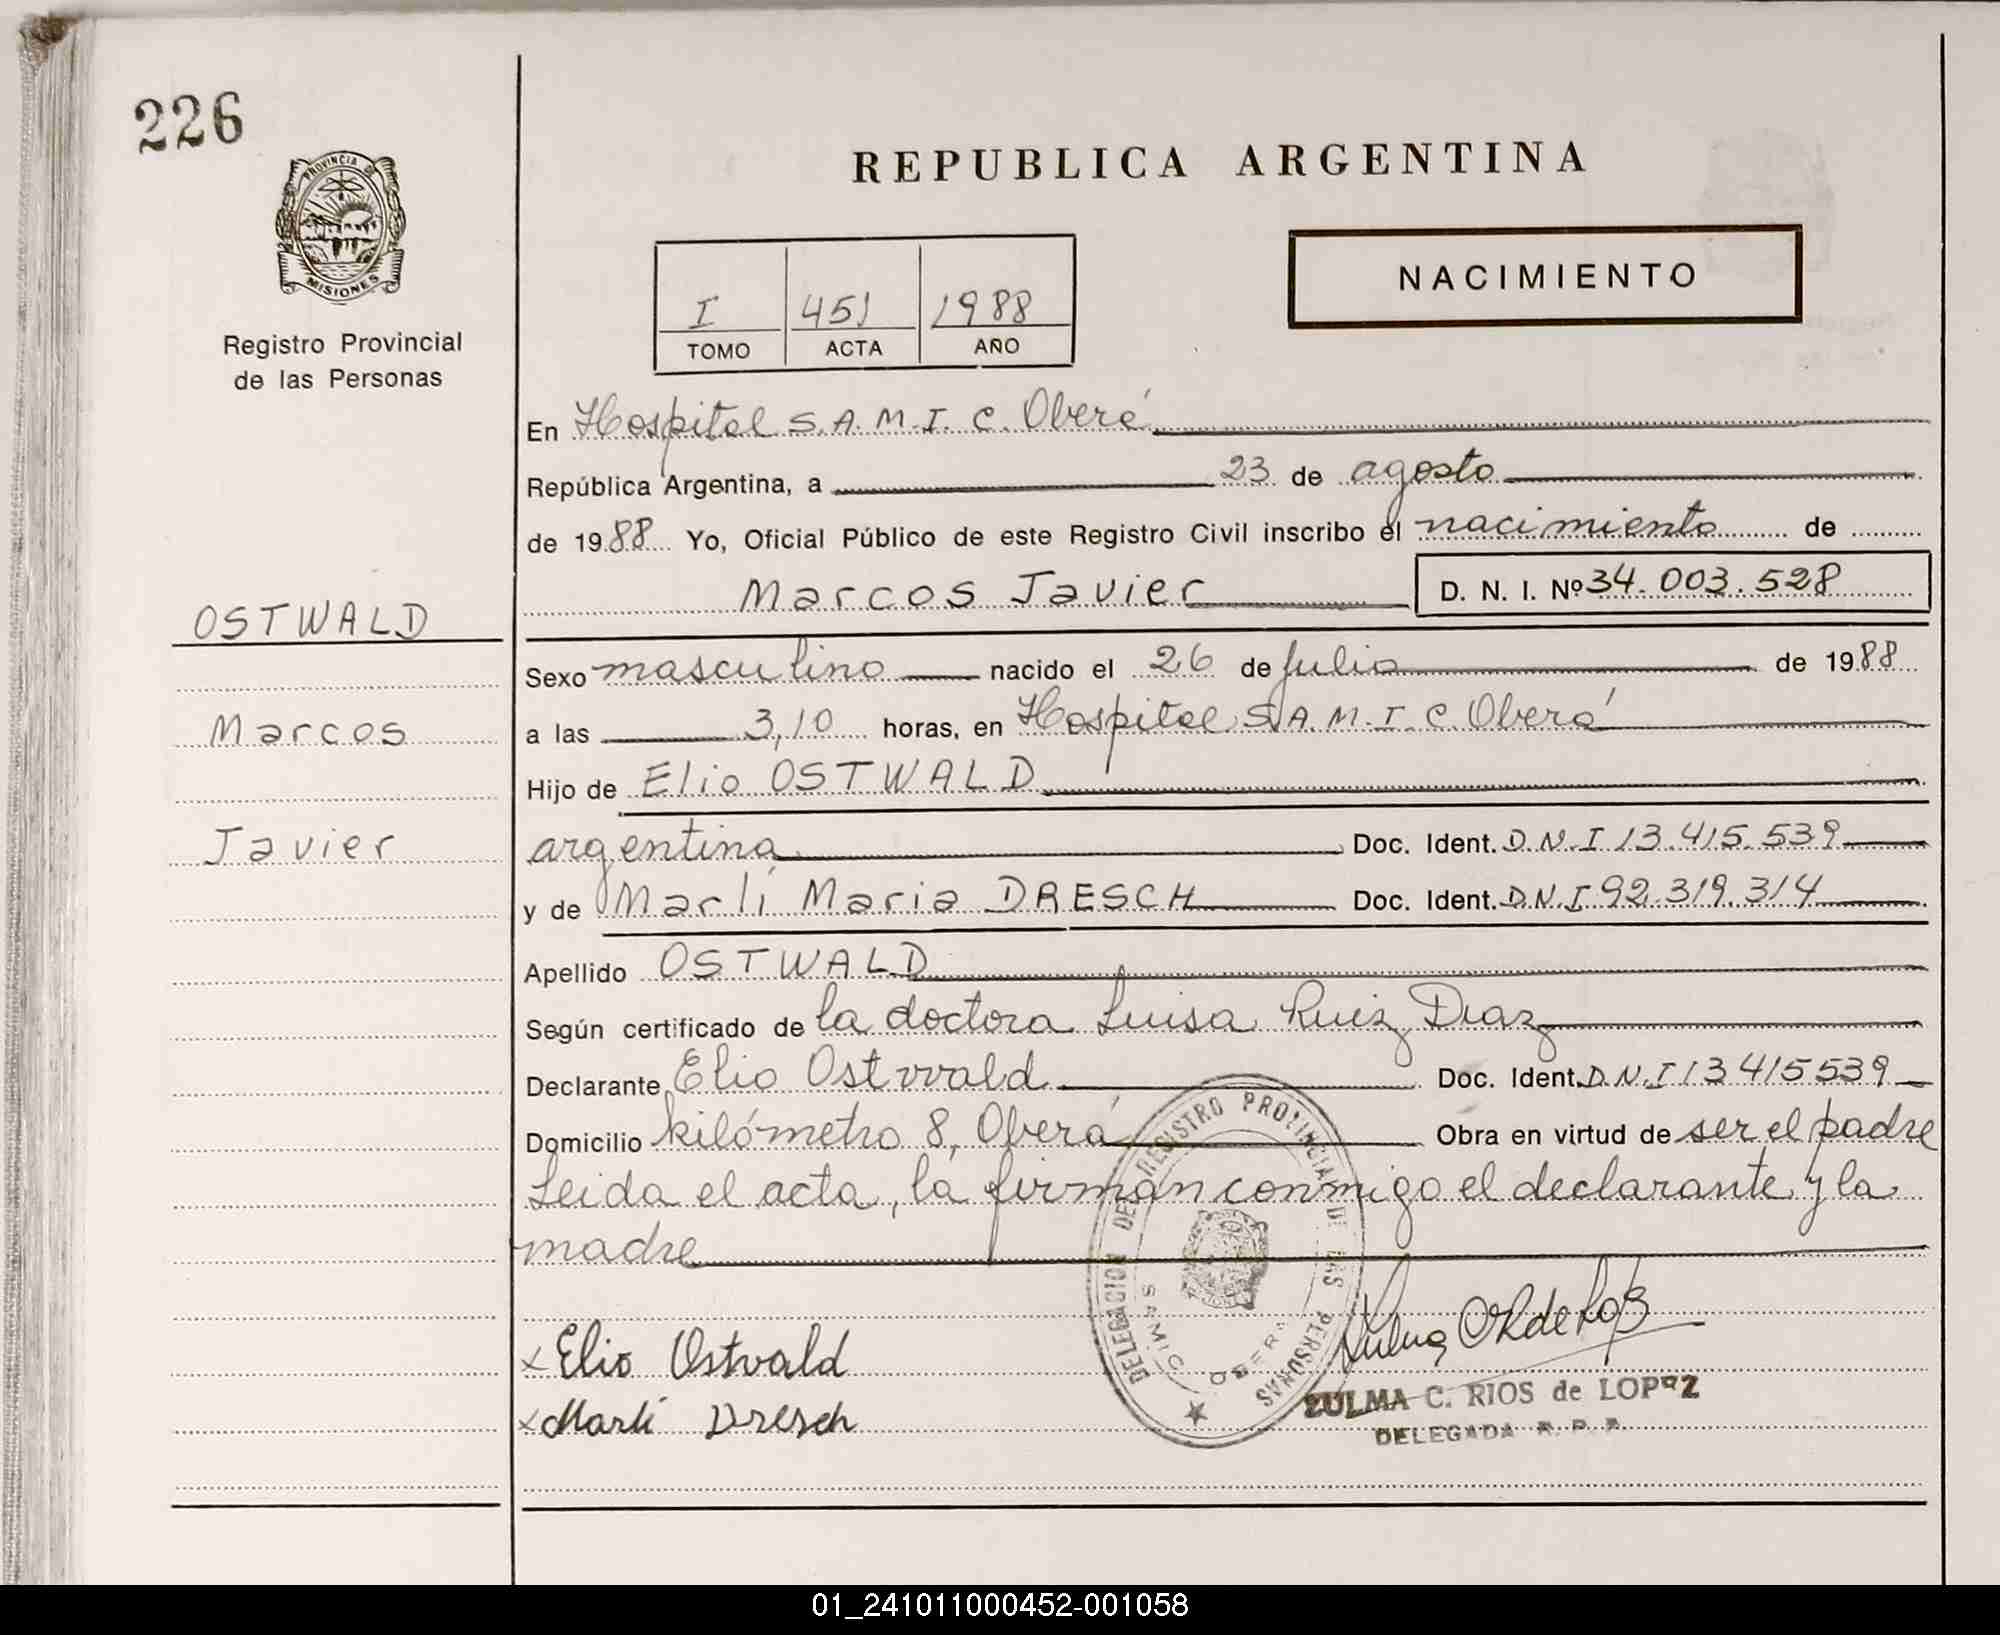 226
PROVINCIA DE
MISIONES
Registro Provincial
de las Personas
REPUBLICA ARGENTINA
I 451 1988
TOMO ACTA AÑO
NACIMIENTO
En Hospital S.A.M.I.C. Oberá
República Argentina, a 23 de agosto
de 1988 Yo, Oficial Público de este Registro Civil inscribo el nacimiento de
Marcos Javier D. N. I. Nº 34.003.528
OSTWALD
Marcos
Javier
Sexo masculino nacido el 26 de Julio de 1988
a las 3,10 horas, en Hospital S.A.M.I.C. Oberá
Hijo de Elio OSTWALD
argentina Doc. Ident. D.N.I 13.415.539
y de Marlí Maria DRESCH Doc. Ident. D.N.I 92.319.314
Apellido OSTWALD
Según certificado de la doctora Luisa Ruiz Diaz
Declarante Elio Ostwald Doc. Ident. D.N.I 13415539
Domicilio kilómetro 8, Oberá Obra en virtud de ser el padre
Leida el acta, la firman conmigo el declarante y la
madre
DELEGACION DEL REGISTRO PROVINCIAL DE LAS PERSONAS
SAMIC OBERA
x Elio Ostvald
x Marli Dresch
ZULMA C. RIOS de LOPEZ
DELEGADA R. P. P.
01_241011000452-001058